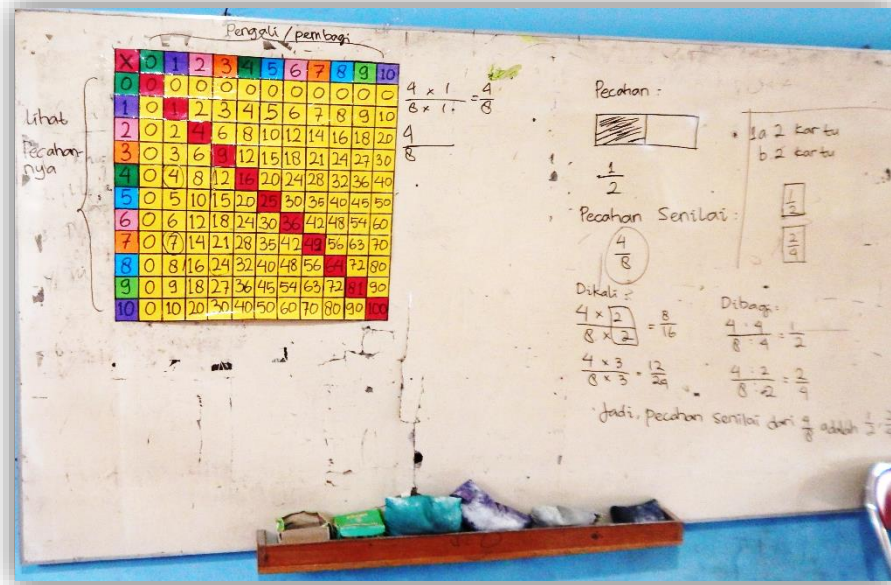 Pengali / pembagi
X 0 1 2 3 4 5 6 7 8 9 10
0 0 0 0 0 0 0 0 0 0 0 0
1 0 1 2 3 4 5 6 7 8 9 10
2 0 2 4 6 8 10 12 14 16 18 20
3 0 3 6 9 12 15 18 21 24 27 30
4 0 4 8 12 16 20 24 28 32 36 40
5 0 5 10 15 20 25 30 35 40 45 50
6 0 6 12 18 24 30 36 42 48 54 60
7 0 7 14 21 28 35 42 49 56 63 70
8 0 8 16 24 32 40 48 56 64 72 80
9 0 9 18 27 36 45 54 63 72 81 90
10 0 10 20 30 40 50 60 70 80 90 100
Lihat
Pecahan-
nya
4 x 1 = 4
8 x 1 8
4
8
Pecahan :
1
2
Pecahan Senilai :
4
8
Dikali :
4 x 2 = 8
8 x 2 16
4 x 3 = 12
8 x 3 24
Dibagi :
4 : 4 = 1
8 : 4 2
4 : 2 = 2
8 : 2 4
Jadi, pecahan senilai dari 4/8 adalah 1/2
1a 2 kartu
b. 2 kartu
1
2
2
4